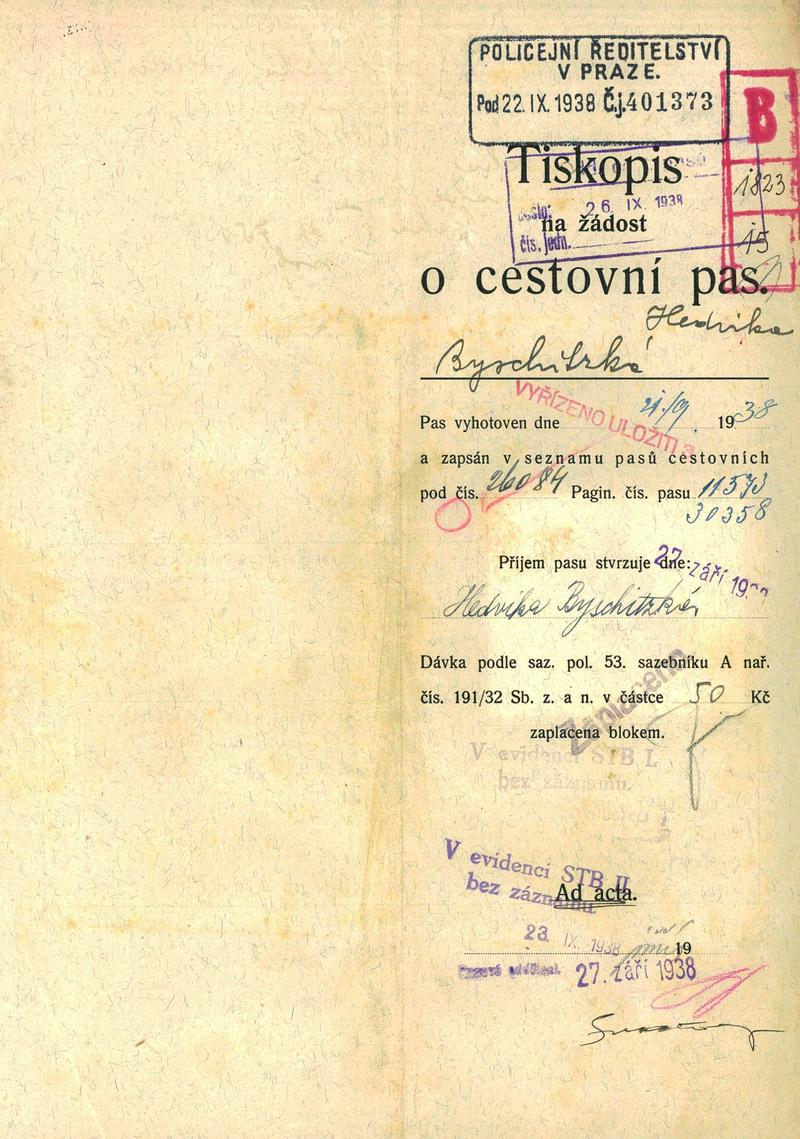 POLICEJNÍ ŘEDITELSTVÍ
V PRAZE.
Pod 22. IX. 1938 Č.j. 401373
B
1823
15
Tiskopis
26. IX. 1938
na žádost
čís. jedn.
o cestovní pas.
Hedvika
Byschitzká
VYŘÍZENO ULOŽITI
Pas vyhotoven dne 21./9. 1938
a zapsán v seznamu pasů cestovních
pod čís. 26084 Pagin. čís. pasu 11573
30358
Příjem pasu stvrzuje dne: 27. září
Hedvika Byschitzká
Dávka podle saz. pol. 53. sazebníku A nař.
čís. 191/32 Sb. z. a n. v částce 50 Kč
Zaplaceno
zaplacena blokem.
V evidenci STB I.
bez záznamu.
V evidenci STB II
bez záznamu.
Ad acta.
23. IX. 1938 19
27. září 1938